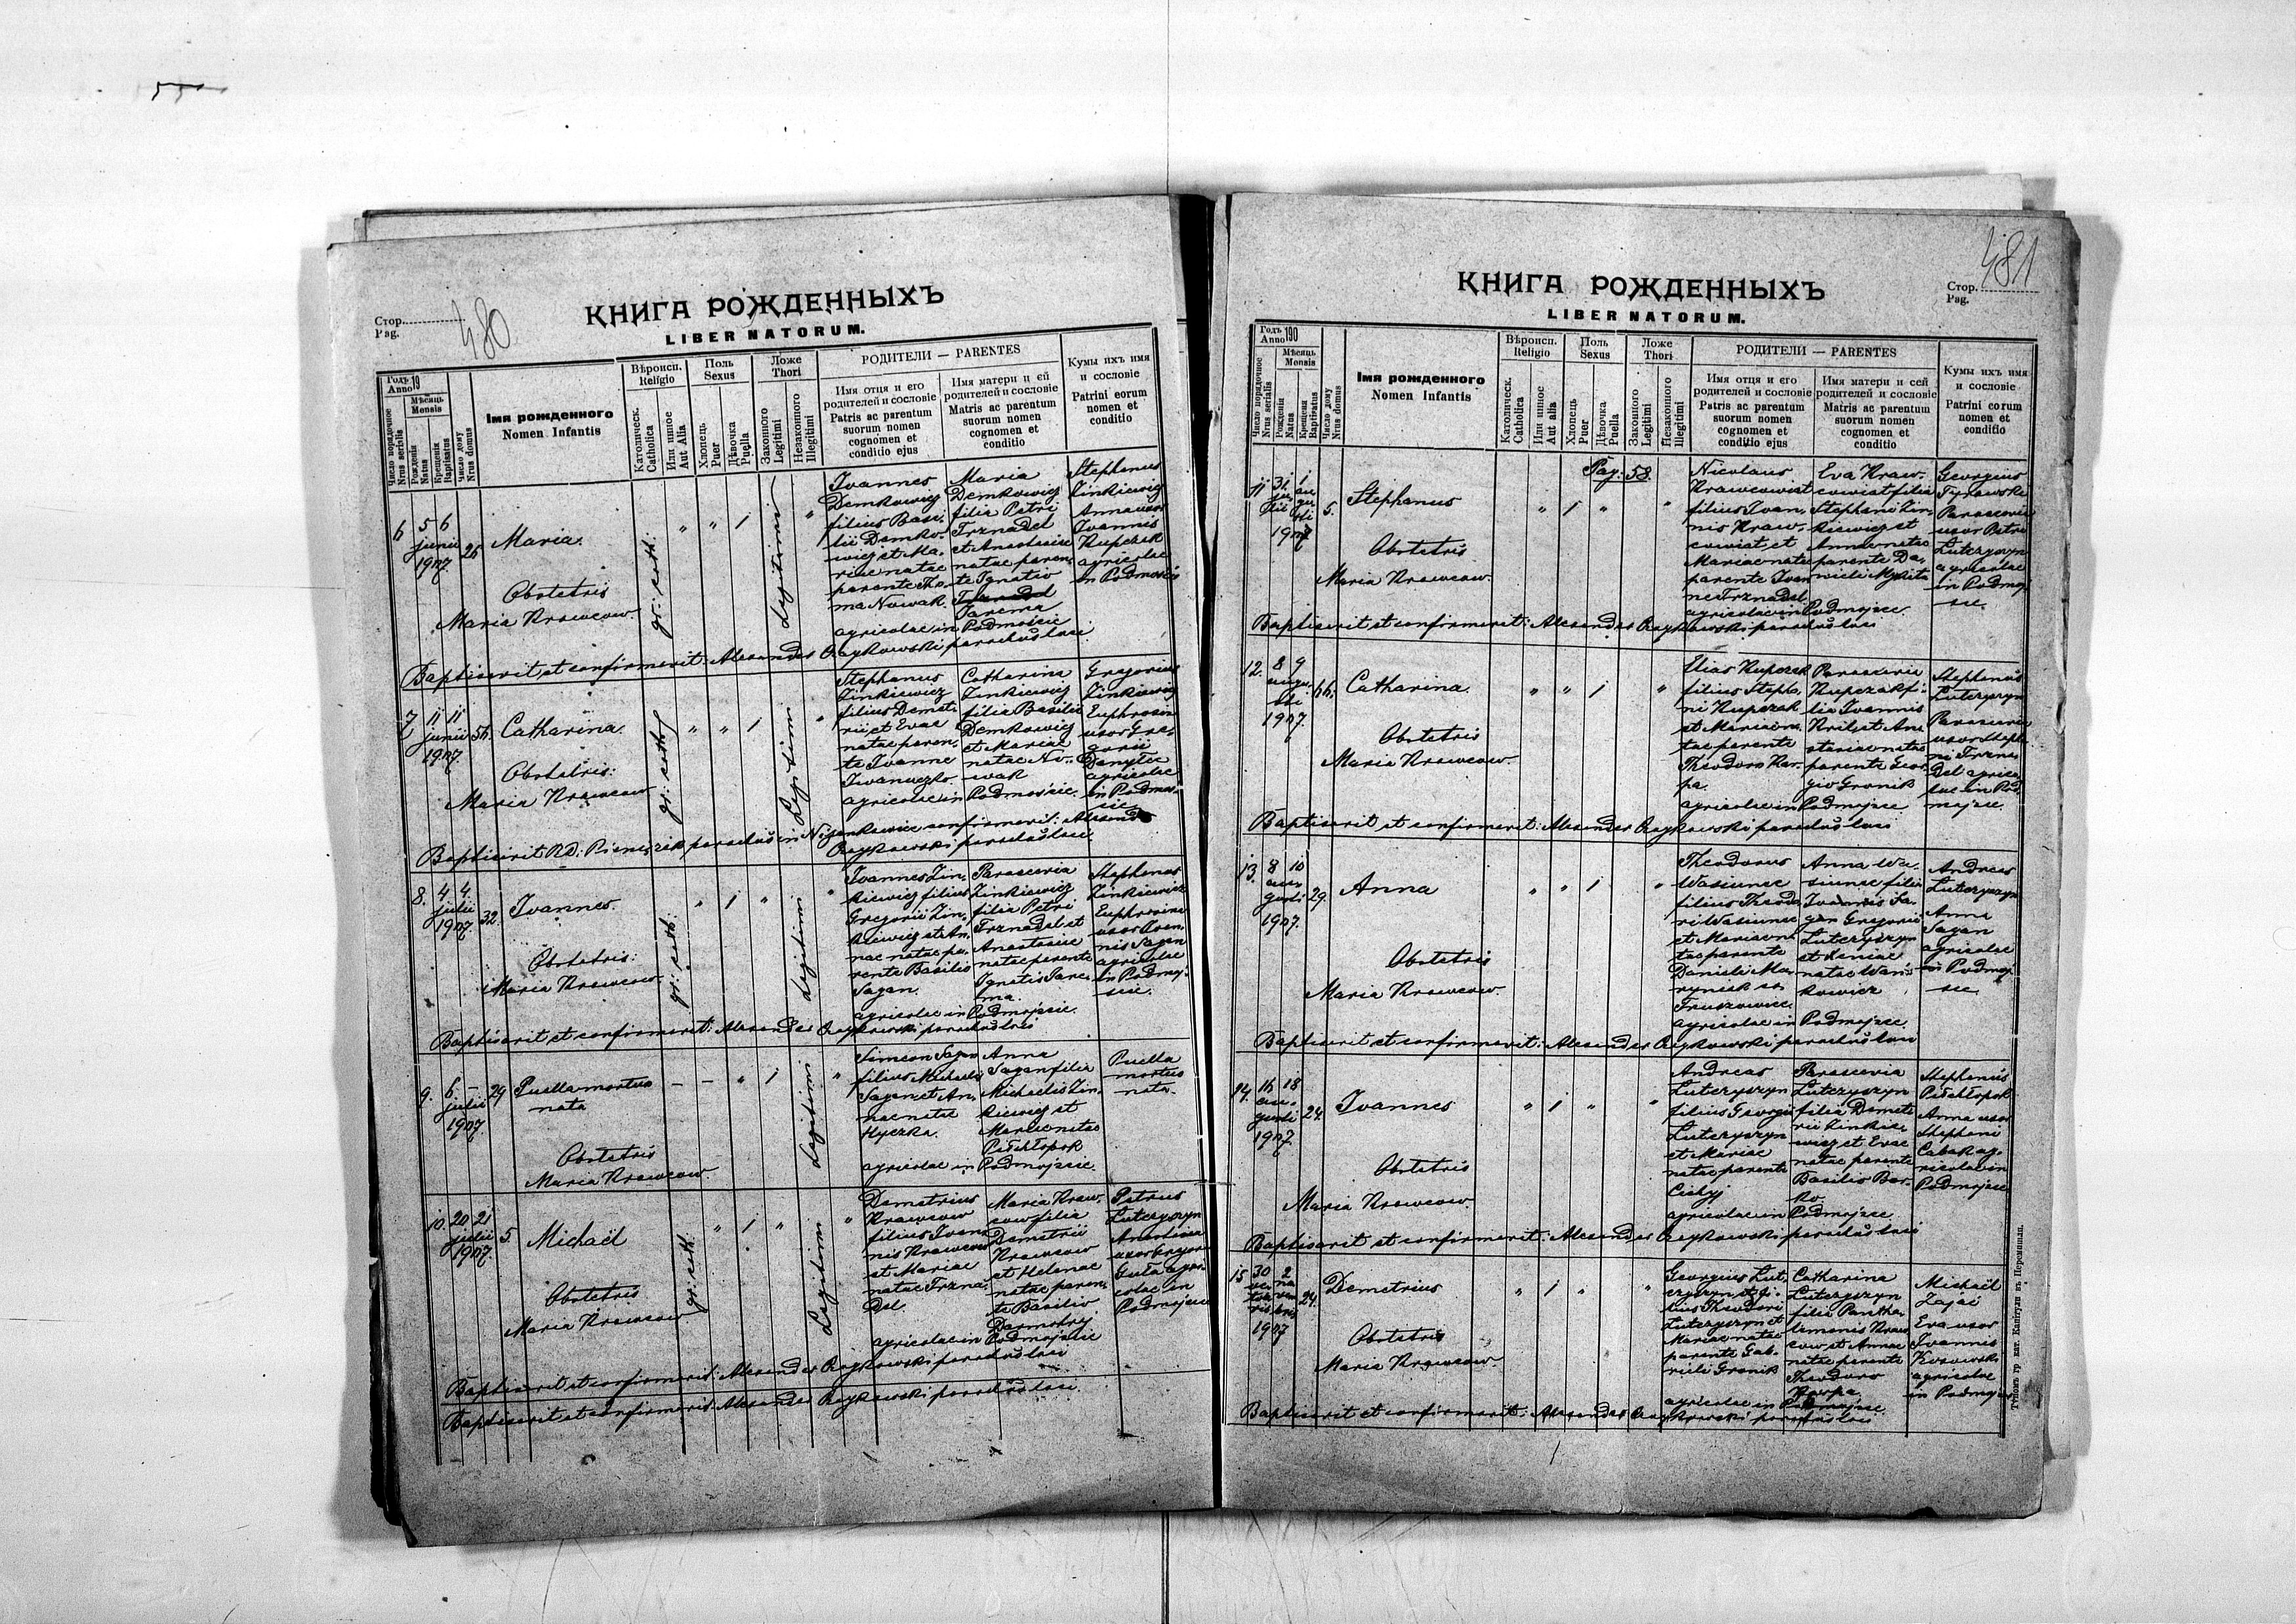 Стор.
Pag.
480
КНИГА РОЖДЕННЫХЪ
LIBER NATORUM.
Годъ
Anno 19
Мѣсяць
Mensis
Число порядочное
Nrus serialis
Рожденія
Natus
Крещенія
Baptisatus
Число дому
Nrus domus
Імя рожденного
Nomen Infantis
Вѣроисп.
Religio
Католическ.
Catholica
Или инное
Aut Alia
Полъ
Sexus
Хлопець
Puer
Дѣвочка
Puella
Ложе
Thori
Законного
Legitimi
Незаконного
Illegitimi
РОДИТЕЛИ — PARENTES
Имя отця и его
родителей и сословіе
Patris ac parentum
suorum nomen
cognomen et
conditio ejus
Имя матери и єй
родителей и сословіе
Matris ac parentum
suorum nomen
cognomen et
conditio
Кумы ихъ имя
и сословіе
Patrini eorum
nomen et
conditio
6
5 6
junii
1907.
26
Maria.
Obstetris
Maria Krawcow.
gr: cath:
" " 1
Legitimi
"
Ioannes
Demkowicz
filius Basi-
lii Demko-
wicz et Ma-
riae natae
parente Tho-
ma Nowak.
Maria
Demkowicz
filia Petri
Trznadel
et Anastasiae
natae paren-
te Ignatio
Jarema
agricolae in Podmojsce
Stephanus
Zinkiewicz
Anna uxor
Ioannis
Kupczak
agricolae
in Podmojsce
Baptisavit et confirmavit: Alexander Czajkowski parochus loci
7
11 11
junii
1907.
56.
Catharina.
Obstetris:
Maria Krawcow
gr: cath:
" " 1
Legitimi
"
Stephanus
Zinkiewicz
filius Demet-
rii et Evae
natae paren-
te Ioanne
Iwanuszko
Catharina
Zinkiewicz
filia Basilii
Demkowicz
et Mariae
natae No-
wak
agricolae in Podmojsce.
Gregorius
Zinkiewicz
Euphrosina
uxor Gre-
gorii
agricolae
in Podmoj-
sce
Alexander
Czajkowski parochus loci
8.
4. 4.
julii
1907.
32.
Ioannes.
Obstetris:
Maria Krawcow.
gr: cath:
" 1 "
Legitimi
"
Ioannes Zin-
kiewicz filius
Gregorii Zin-
kiewicz et An-
nae natae pa-
rente Basilio
Sagan.
Parascevia
Zinkiewicz
filia Petri
Trznadel et
Anastasiae
natae parente
Ignatio Jare-
ma.
agricolae in Podmojsce.
Stephanus
Zinkiewicz
Euphrosina
uxor Ioan-
nis Sagan
agricolae
in Podmoj-
sce.
Baptisavit et confirmavit: Alexander Czajkowski parochus loci
9.
6. –
julii
1907.
29
Puella mortua
nata
Obstetris
Maria Krawcow.
– – " 1
Legitimi
"
Simeon Sagan
filius Michaelis
Sagan et An-
nae natae
Hyczka.
Anna
Sagan filia
Michaelis Zin-
kiewicz et
Mariae natae
agricolae in Podmojsce.
Puella
mortua
nata.
10.
20 21
julii
1907.
5.
Michaël
Obstetris
Maria Krawcow
gr: cath:
" 1 "
Legitimi
"
Demetrius
Krawcow
filius Ioan-
nis Krawcow
et Mariae
natae Trzna-
del.
Maria Kraw-
cow filia
Demetrii
Krawcow
et Helenae
natae paren-
te Basilio
agricolae in Podmojsce
Petrus
Luteryszyn
Anastasia
uxor Gregorii
Guła agri-
colae in
Podmojsce
Baptisavit et confirmavit: Alexander Czajkowski parochus loci
Baptisavit et confirmavit: Alexander Czajkowski parochus loci.
Стор.
Pag.
481
КНИГА РОЖДЕННЫХЪ
LIBER NATORUM.
Годъ
Anno 190
Мѣсяць
Mensis
Число порядочное
Nrus serialis
Рожденія
Natus
Крещенія
Baptisatus
Число дому
Nrus domus
Імя рожденного
Nomen Infantis
Вѣроисп.
Religio
Католическ.
Catholica
Или инное
Aut alia
Полъ
Sexus
Хлопець
Puer
Дѣвочка
Puella
Ложе
Thori
Законного
Legitimi
Незаконного
Illegitimi
РОДИТЕЛИ — PARENTES
Имя отця и его
родителей и сословіе
Patris ac parentum
suorum nomen
cognomen et
conditio ejus
Имя матери и сей
родителей и сословіе
Matris ac parentum
suorum nomen
cognomen et
conditio
Кумы ихъ имя
и сословіе
Patrini eorum
nomen et
conditio
Pag: 58.
11
31 1
1907
5.
Stephanus
Obstetris
Maria Krawcow.
" 1 " "
Nicolaus
Krawcowiat
filius Ioan-
nis Kraw-
cowiat et
Mariae natae
parente Ioan-
ne Trznadel
Eva Kraw-
cowiat filia
Stephani Zin-
kiewicz et
Annae natae
parente Da-
niele Mykita
agricolae in Podmojsce.
Georgius
Parascevia
uxor Petri
Luteryszyn
agricolae
in Podmoj-
sce.
Baptisavit et confirmavit: Alexander Czajkowski parochus loci
12.
8 9
augu-
sti
1907.
66.
Catharina.
Obstetris
Maria Krawcow
" " 1 "
Elias Kupczak
filius Stepha-
ni Kupczak
et Mariae na-
tae parente
Theodoro Kar-
pa.
Parascevia
Kupczak fi-
lia Ioannis
Kril et Ana-
stasiae natae
parente Geor-
gio Gronik
agricolae in Podmojsce
Stephanus
Luteryszyn
Parascevia
uxor Stepha-
ni Trzna-
del agrico-
lae in Pod-
mojsce.
Baptisavit et confirmavit: Alexander Czajkowski parochus loci
13.
8 10
au-
gusti
1907.
29.
Anna
Obstetris
Maria Krawcow.
" " 1 "
Theodorus
Wasiunec
filius Theodo-
ri Wasiunec
et Mariae na-
tae parente
Daniele Ma-
ryniak ex
Truszowice.
Anna Wa-
siunec filia
Ioannis Sa-
gan Gregorii
Luteryszyn
et Xeniae
natae Wań-
kowicz
agricolae in Podmojsce.
Andreas
Luteryszyn
Anna
Sagan
agricolae
in Podmoj-
sce
Baptisavit et confirmavit: Alexander Czajkowski parochus loci
14.
16 18
au-
gusti
1907.
24.
Ioannes
Obstetris
Maria Krawcow.
" 1 " "
Andreas
Luteryszyn
filius Georgii
Luteryszyn
et Mariae
natae parente
Cichyj
Parascevia
Luteryszyn
filia Demet-
rii Zinkie-
wicz et Evae
natae parente
Basilio Bar-
ko.
agricolae in Podmojsce
Stephanus
Anna uxor
Stephani
Cabak ag-
ricolae in
Podmojsce
Baptisavit et confirmavit: Alexander Czajkowski parochus loci
15
30 2
1907
24.
Demetrius
Obstetris
Maria Krawcow
" 1 " "
Georgius Lut-
eryszyn et fi-
lius Theodori
Luteryszyn et
Mariae natae
parente Gab-
riele Gronik
Catharina
Luteryszyn
filia Pantha-
lemonis Kraw-
cow et Annae
natae parente
Theodoro
Karpa.
agricolae in Podmojsce.
Michaël
Zając
Eva uxor
Ioannis
Kosowski
agricolae
in Podmojsce
Baptisavit et confirmavit: Alexander Czajkowski parochus loci